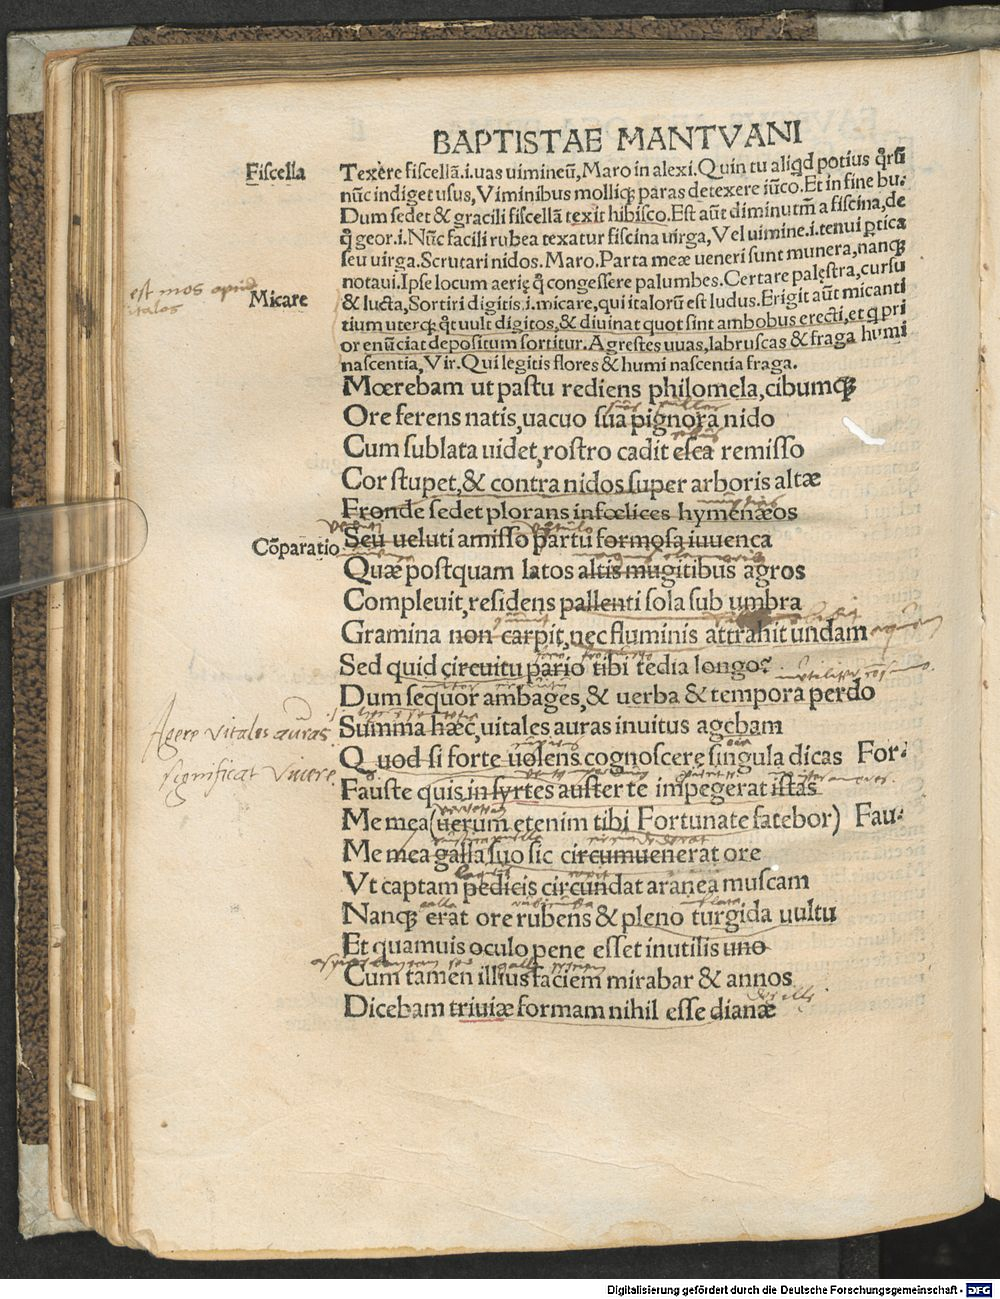 BAPTISTAE MANTVANI
Fiscella
Texere fiscellã.i.uas uimineũ, Maro in alexi. Quin tu aliqd potius qrũ
nũc indiget usus, Viminibus molliqꝫ paras detexere iũco. Et in fine bu.
Dum sedet & gracili fiscellã texit hibisco. Est aũt diminutm̃ a fiscina, de
q̃ geor.i. Nũc facili rubea texatur fiscina uirga, Vel uimine.i.tenui ꝑtica
seu uirga. Scrutari nidos. Maro. Parta meæ ueneri sunt munera, nanqꝫ
notaui. Ipse locum aerię q̃ congessere palumbes. Certare palęstra, cursu
est mos apud
italos
Micare
& lucta, Sortiri digitis.i.micare, qui italorũ est ludus. Erigit aũt micanti
tium uterqꝫ q̃t uult digitos, & diuinat quot sint ambobus erecti, et q pri
or enũciat depositum sortitur. Agrestes uuas, labruscas & fraga humi
nascentia, Vir. Qui legitis flores & humi nascentia fraga.
Mœrebam ut pastu rediens philomela, cibumqꝫ
Ore ferens natis, uacuo sua pignora nido
Cum sublata uidet, rostro cadit esca remisso
Cor stupet, & contra nidos super arboris altæ
Fronde sedet plorans infœlices hymenæos
Cõparatio
Seu ueluti amisso partu formosa iuuenca
Quæ postquam latos altis mugitibus agros
Compleuit, residens pallenti sola sub umbra
Gramina non carpit, nec fluminis attrahit undam
Sed quid circuitu pario tibi tedia longo?
Dum sequor ambages, & uerba & tempora perdo
Agere vitales auras
significat vivere
Summa hæc, uitales auras inuitus agebam
Quod si forte uolens cognoscere singula dicas For.
Fauste quis in syrtes auster te impegerat istas
Me mea (uerum etenim tibi Fortunate fatebor) Fau.
Me mea galla suo sic circumuenerat ore
Vt captam pedicis circundat aranea muscam
Nanqꝫ erat ore rubens & pleno turgida uultu
Et quamuis oculo pene esset inutilis uno
Cum tamen illius faciem mirabar & annos
Dicebam triuiæ formam nihil esse dianæ
Digitalisierung gefördert durch die Deutsche Forschungsgemeinschaft - DFG